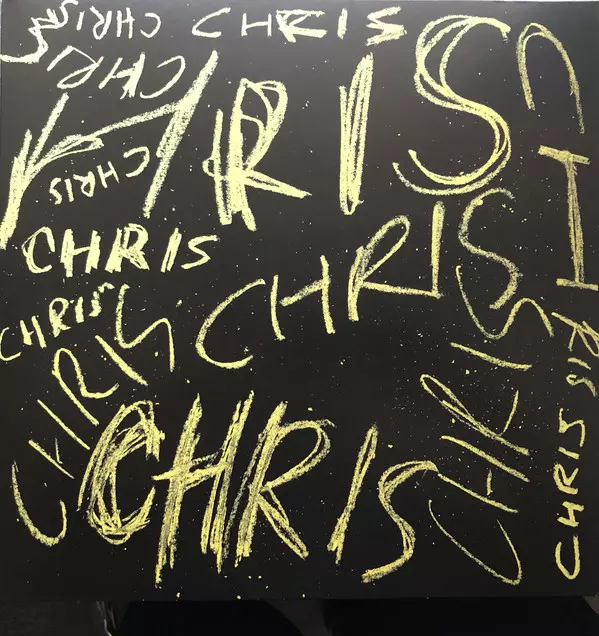 CHRIS
CHRIS
CHRIS
CHRIS
CHRIS
CHRIS
CHRIS
CHRIS
CHRIS
CHRIS
CHRIS
CHRIS
CHRIS